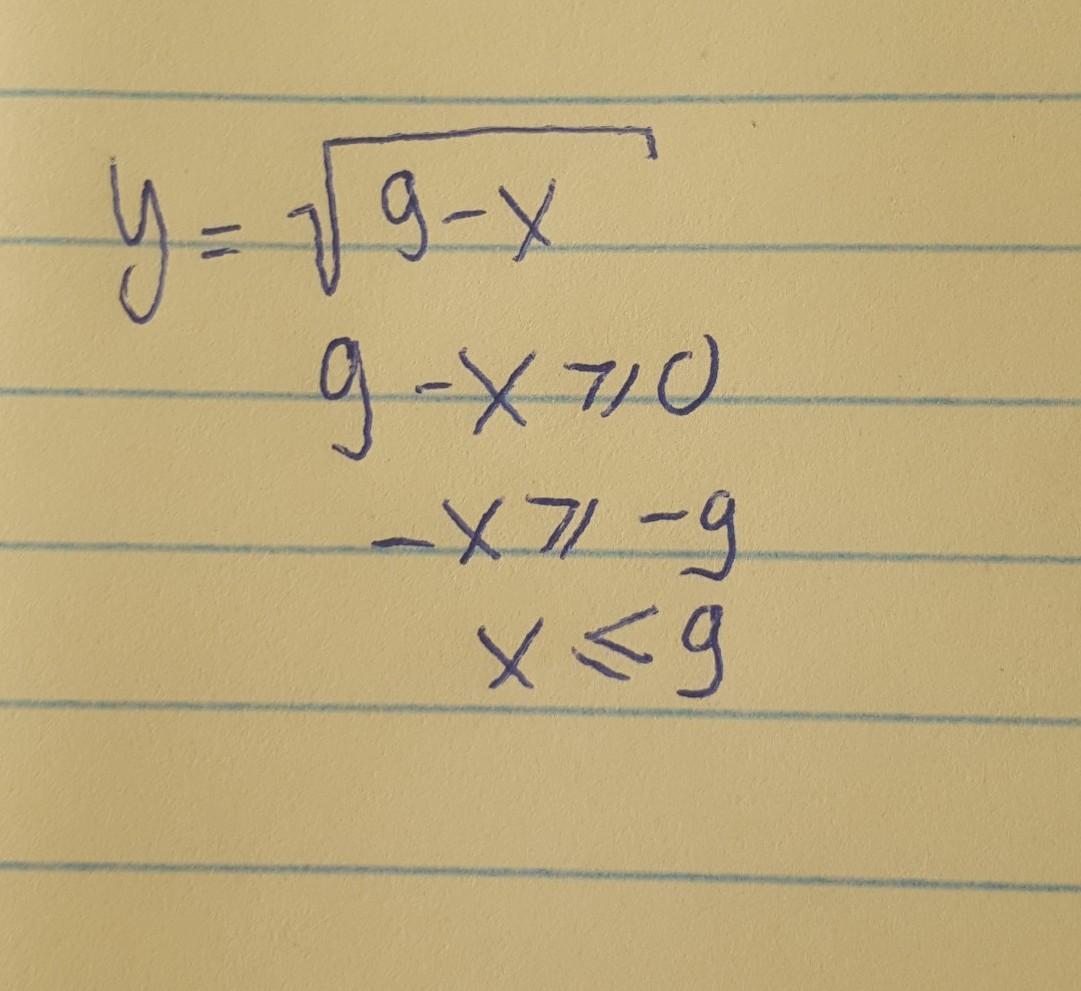 y = √9-x
9-x ⩾ 0
-x ⩾ -9
x ⩽ 9